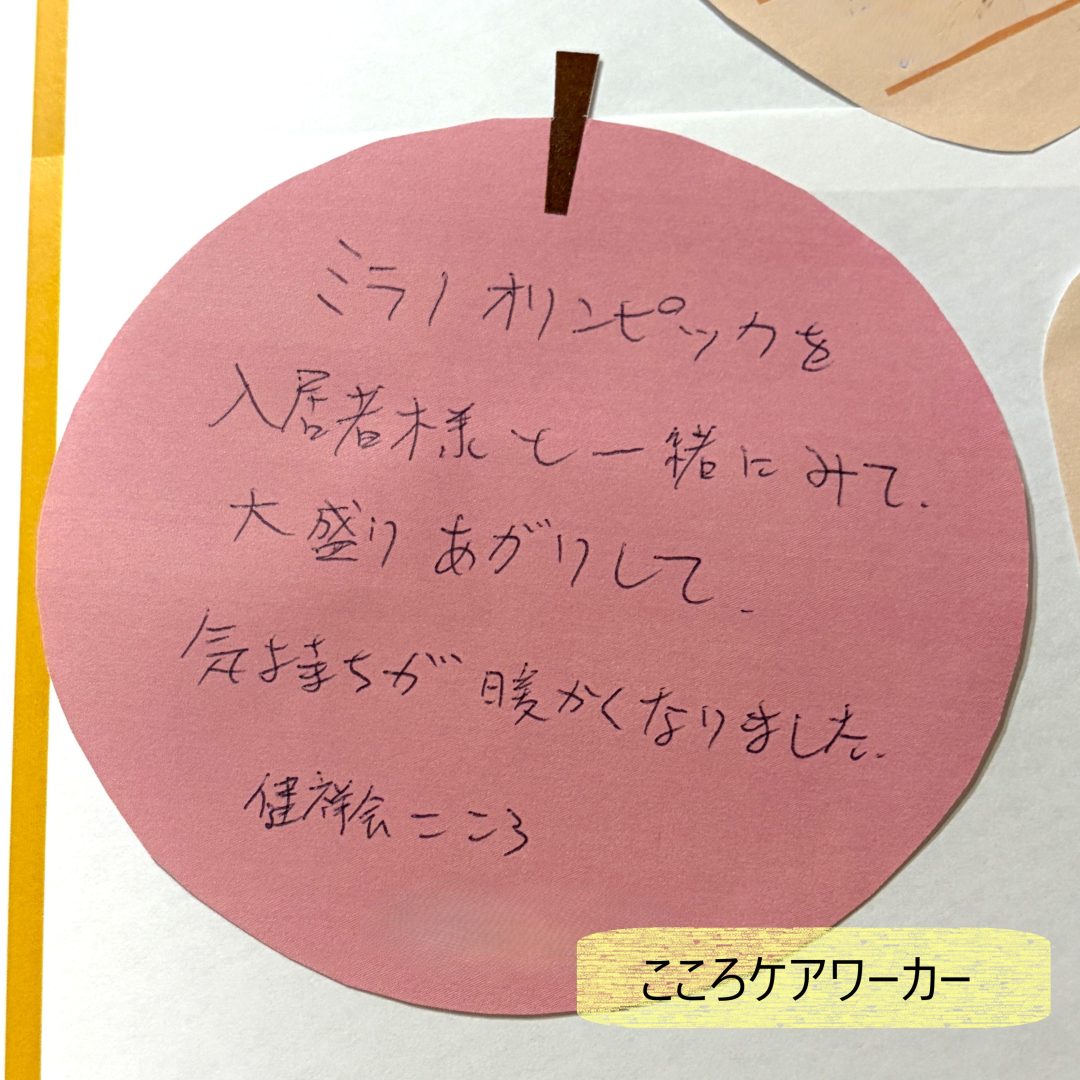 ミラノオリンピックを
入居者様と一緒にみて、
大盛りあがりして、
気持ちが暖かくなりました。
健祥会こころ
こころケアワーカー